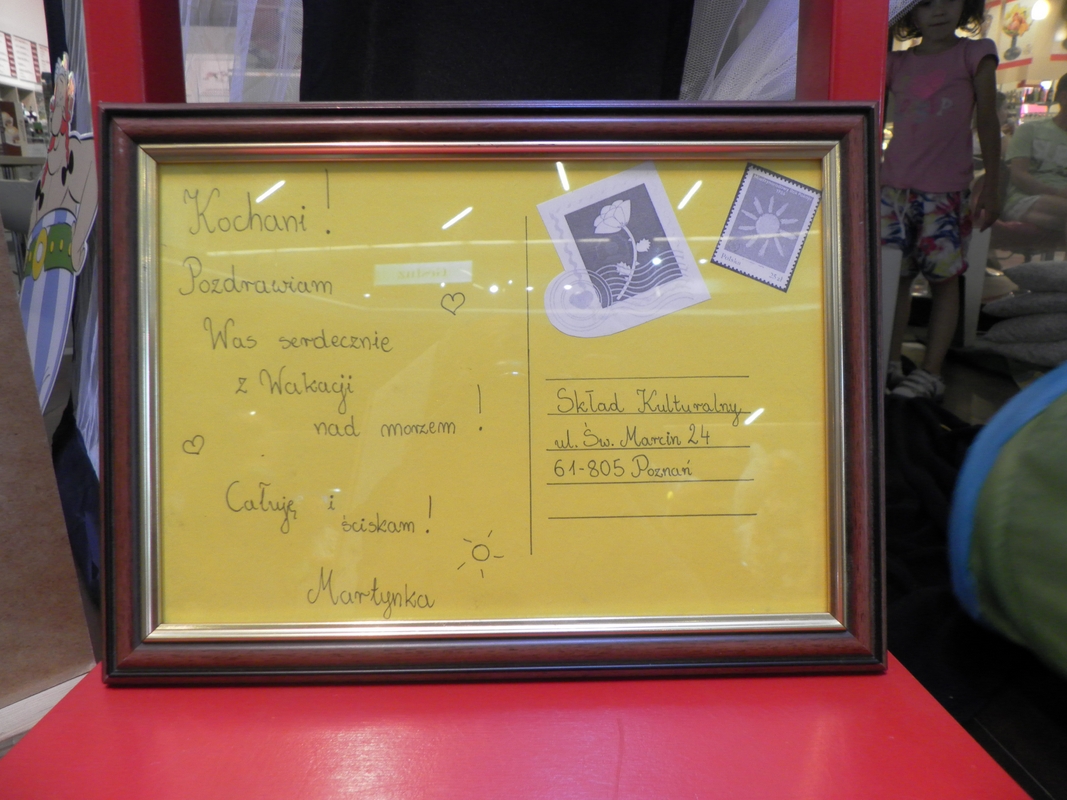 Kochani!
Pozdrawiam
Was serdecznie
z Wakacji
nad morzem!
Całuję i
ściskam!
Martynka
Polska 25 zł
Skład Kulturalny
ul. Św. Marcin 24
61-805 Poznań